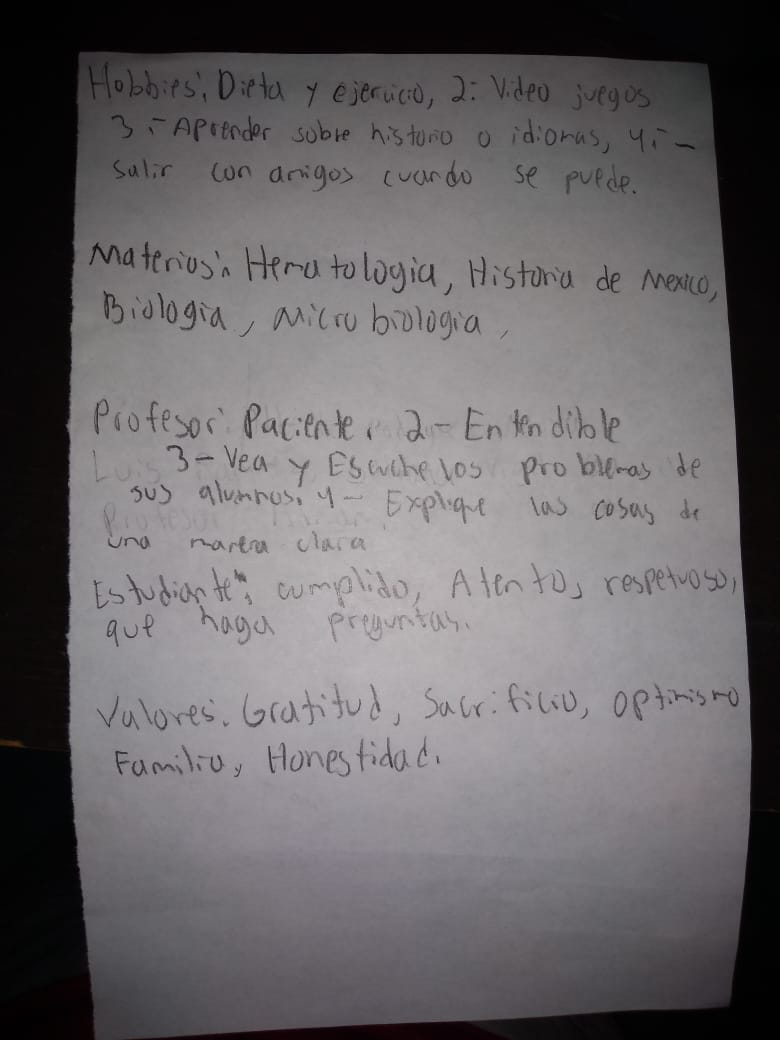 Hobbies: Dieta y ejercicio, 2: Video juegos
3:- Aprender sobre historio o idiomas, 4:-
Salir con amigos cuando se puede.
Materias: Hematologia, Historia de Mexico,
Biologia, Microbiologia,
Profesor: Paciente, 2- Entendible
3- Vea y Escuche los problemas de
sus alumnos. 4- Explique las cosas de
una manera clara
Estudiante: cumplido, Atento, respetuoso,
que haga preguntas.
Valores: Gratitud, Sacrificio, optimismo
Familia, Honestidad.